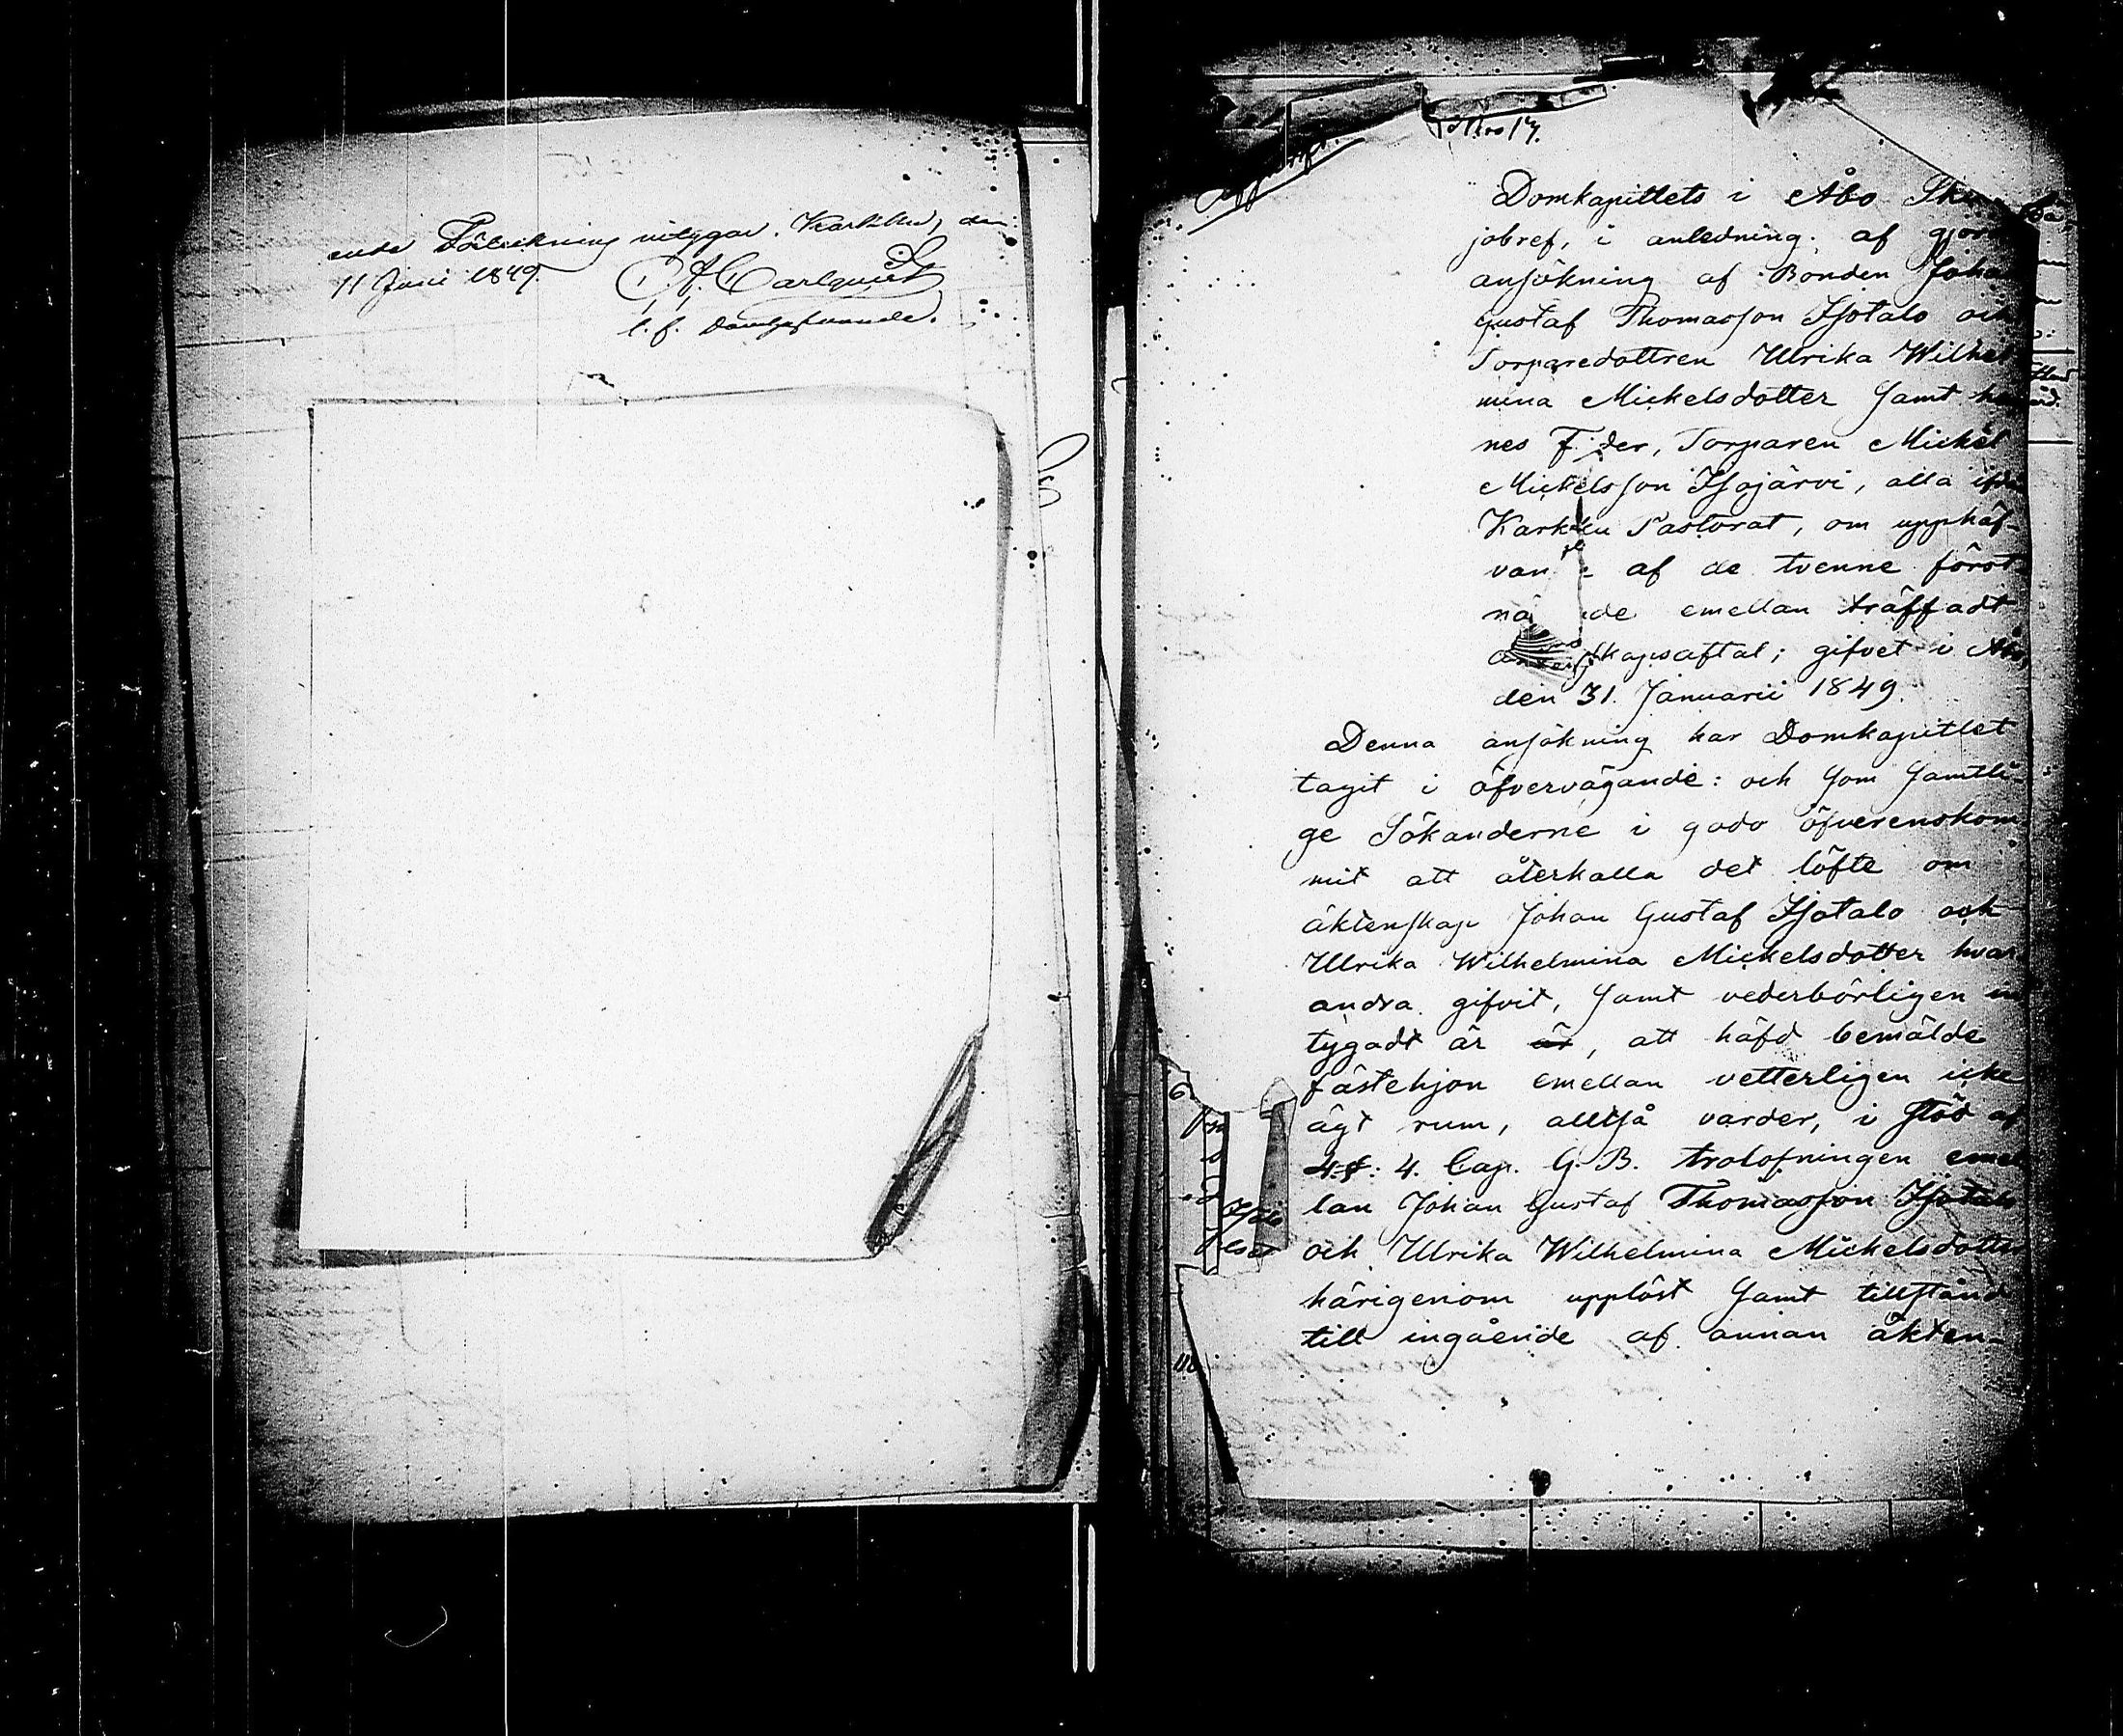 ende Förteckning intygar. Karkku, den
11 Juni 1849. C. A. Carlquist
t. f. Domhafvande.
Afskrift.
Nro 17.
Domkapitlets i Åbo Skil-
jobref, i anledning af gjord
ansökning af Bonden Johan
Gustaf Thomasson Isotalo och
Torparedottren Ulrika Wilhel-
mina Mickelsdotter samt hen-
nes F der, Torparen Mickel
Mickelsson Isojärvi, alla ifrån
Karkku Pastorat, om upphäf-
van af de tvenne först-
nä de emellan träffadt
skapsaftal; gifvet i Åbo
den 31. Januarii 1849.
Denna ansökning har Domkapitlet
tagit i öfvervägande: och som samtli-
ge Sökanderne i godo öfverenskom-
mit att återkalla det löfte om
äktenskap Johan Gustaf Isotalo och
Ulrika Wilhelmina Mickelsdotter hvar-
andra gifvit, samt vederbörligen in-
tygadt är är, att häfd bemälde
fästehjon emellan vetterligen icke
ägt rum, alltså varder, i stöd af
4.§: 4. Cap. G. B. trolofningen emel-
lan Johan Gustaf Thomasson Isotalo
och Ulrika Wilhelmina Mickelsdotter
härigenom upplöst samt tillstånd
till ingående af annan äkten-